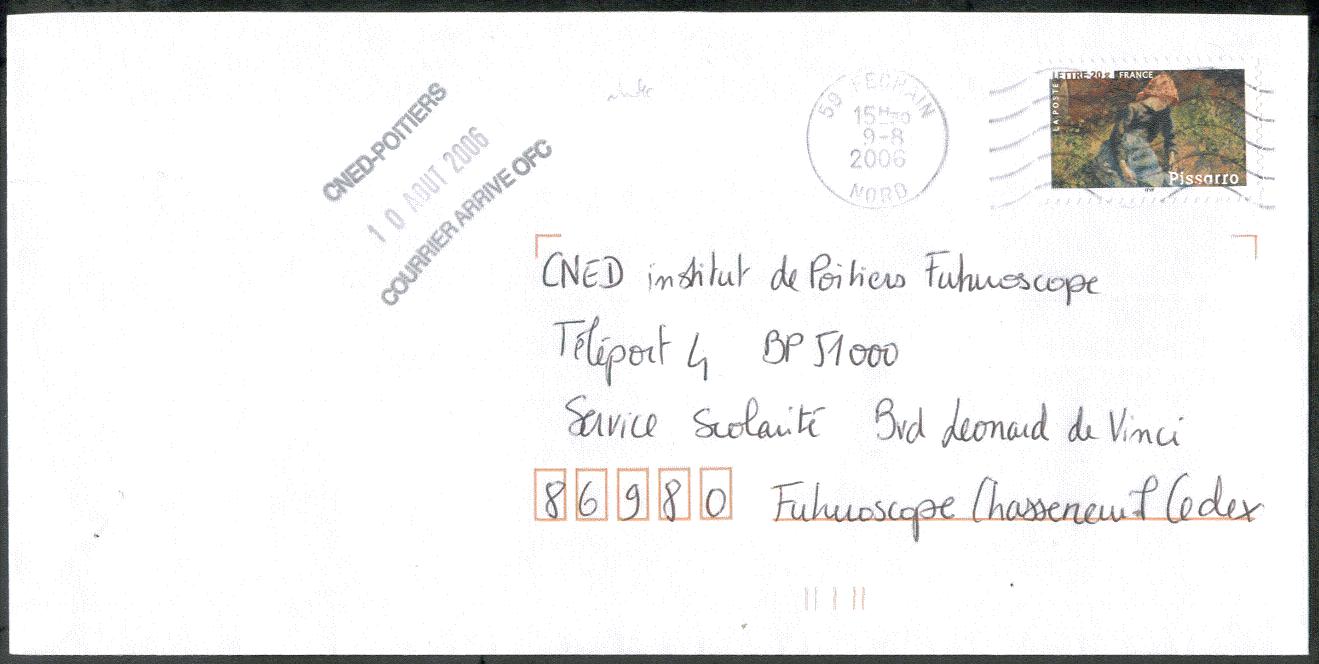 CNED-POITIERS
10 AOUT 2006
COURRIER ARRIVE OFC
59 FECHAIN
15H30
9-8
2006
NORD
LETTRE 20g FRANCE
LA POSTE
Pissarro
CNED institut de Poitiers Futuroscope
Téléport 4 BP 51000
Service Scolarité Bvd Leonard de Vinci
86980 Futuroscope Chasseneuil Cedex